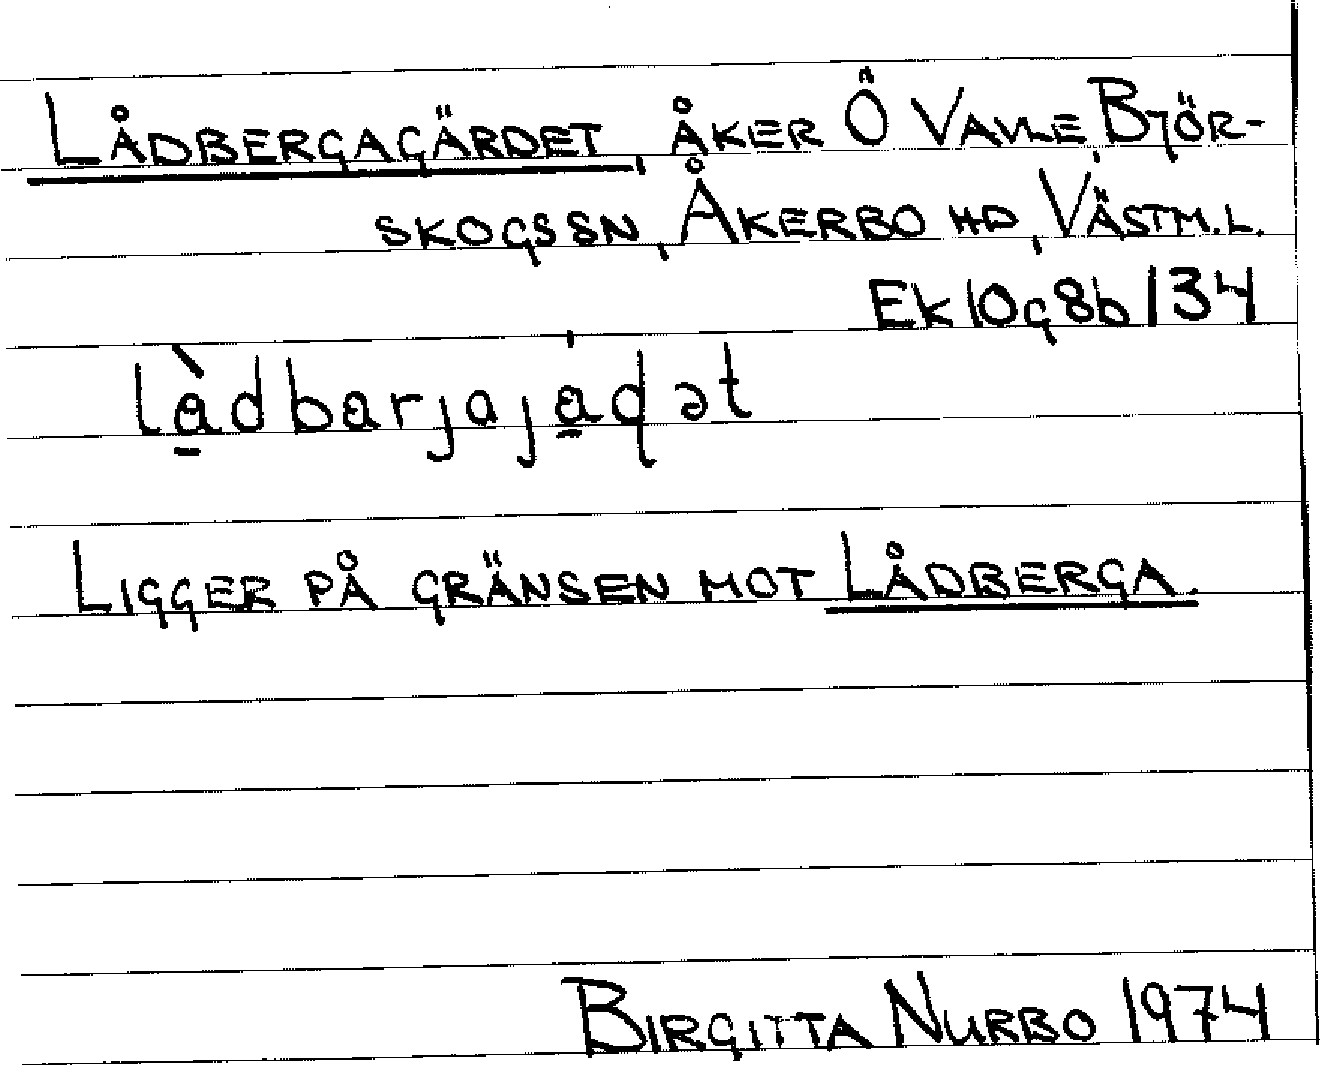 LÅDBERGAGÄRDET, ÅKER Ö VAVLE, BJÖR-
SKOGS SN, ÅKERBO HD, VÄSTM. L.
Ek 10g8b 134
là̱dbarjaja̱ɖət
LIGGER PÅ GRÄNSEN MOT LÅDBERGA.
BIRGITTA NURBO 1974